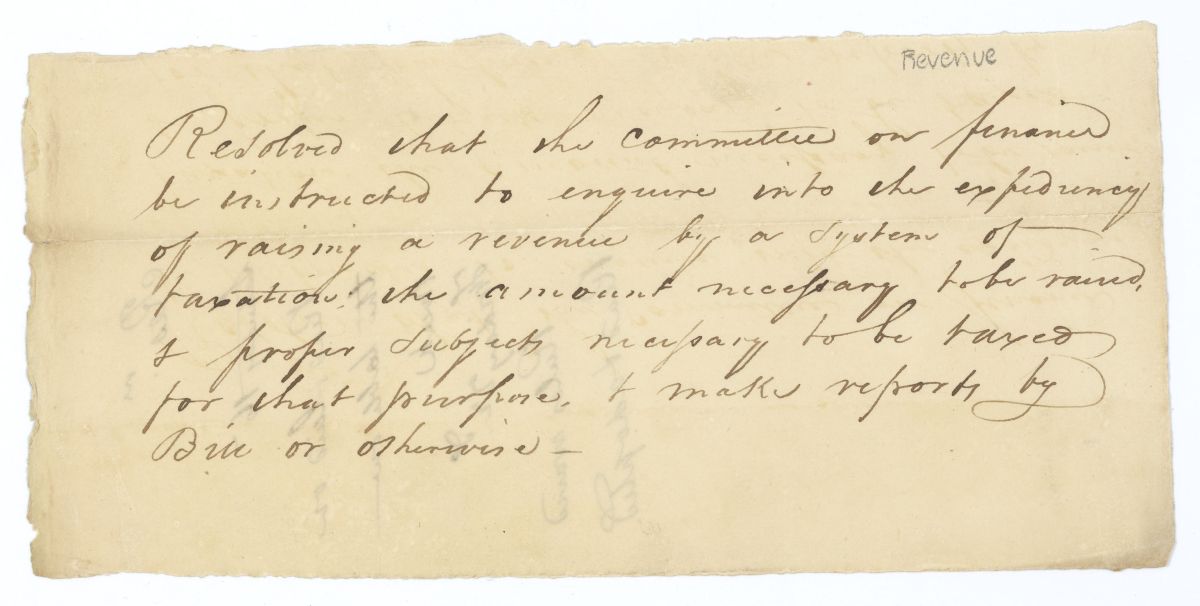 Revenue
Resolved that the committee on finance
be instructed to enquire into the expediency
of raising a revenue by a system of
taxation. the amount necessary to be raised,
& proper subjects necessary to be taxed
for that purpose, & make reports by
Bill or otherwise —